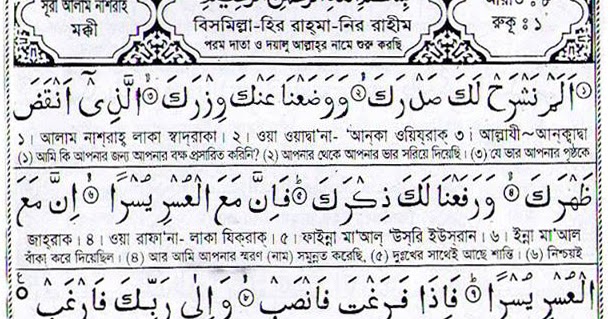 সূরা আলাম নাশরাহ্
মক্কী
বিসমিল্লা-হির রাহ্‌মা-নির রাহীম
পরম দাতা ও দয়ালু আল্লাহ্‌র নামে শুরু করছি
রুকূ : ১
اَلَمْ نَشْرَحْ لَكَ صَدْرَكَ ۝ وَوَضَعْنَا عَنْكَ وِزْرَكَ ۝ الَّذِیْۤ اَنْقَضَ
১। আলাম নাশ্‌রাহ্‌ লাকা স্বাদ্‌রাকা। ২। ওয়া ওয়াদ্বা'না- 'আন্‌কা ওয়িয্‌রাক্ ৩। আল্লাযী~আন্‌ক্বাদ্বা
(১) আমি কি আপনার জন্য আপনার বক্ষ প্রসারিত করিনি? (২) আপনার থেকে আপনার ভার সরিয়ে দিয়েছি। (৩) যে ভার আপনার পৃষ্ঠকে
ظَهْرَكَ ۝ وَرَفَعْنَا لَكَ ذِكْرَكَ ۝ فَاِنَّ مَعَ الْعُسْرِ یُسْرًا ۝ اِنَّ مَعَ
জাহ্‌রাক। ৪। ওয়া রাফা'না- লাকা যিক্‌রাক্। ৫। ফাইন্না মা'আল্ 'উস্‌রি ইউস্‌রান। ৬। ইন্না মা'আল
বাঁকা করে দিয়েছিল। (৪) আর আমি আপনার স্মরণ (নাম) সমুন্নত করেছি, (৫) দুঃখের সাথেই আছে শান্তি। (৬) নিশ্চয়ই
الْعُسْرِ یُسْرًا ۝ فَاِذَا فَرَغْتَ فَانْصَبْ ۝ وَاِلٰی رَبِّكَ فَارْغَبْ